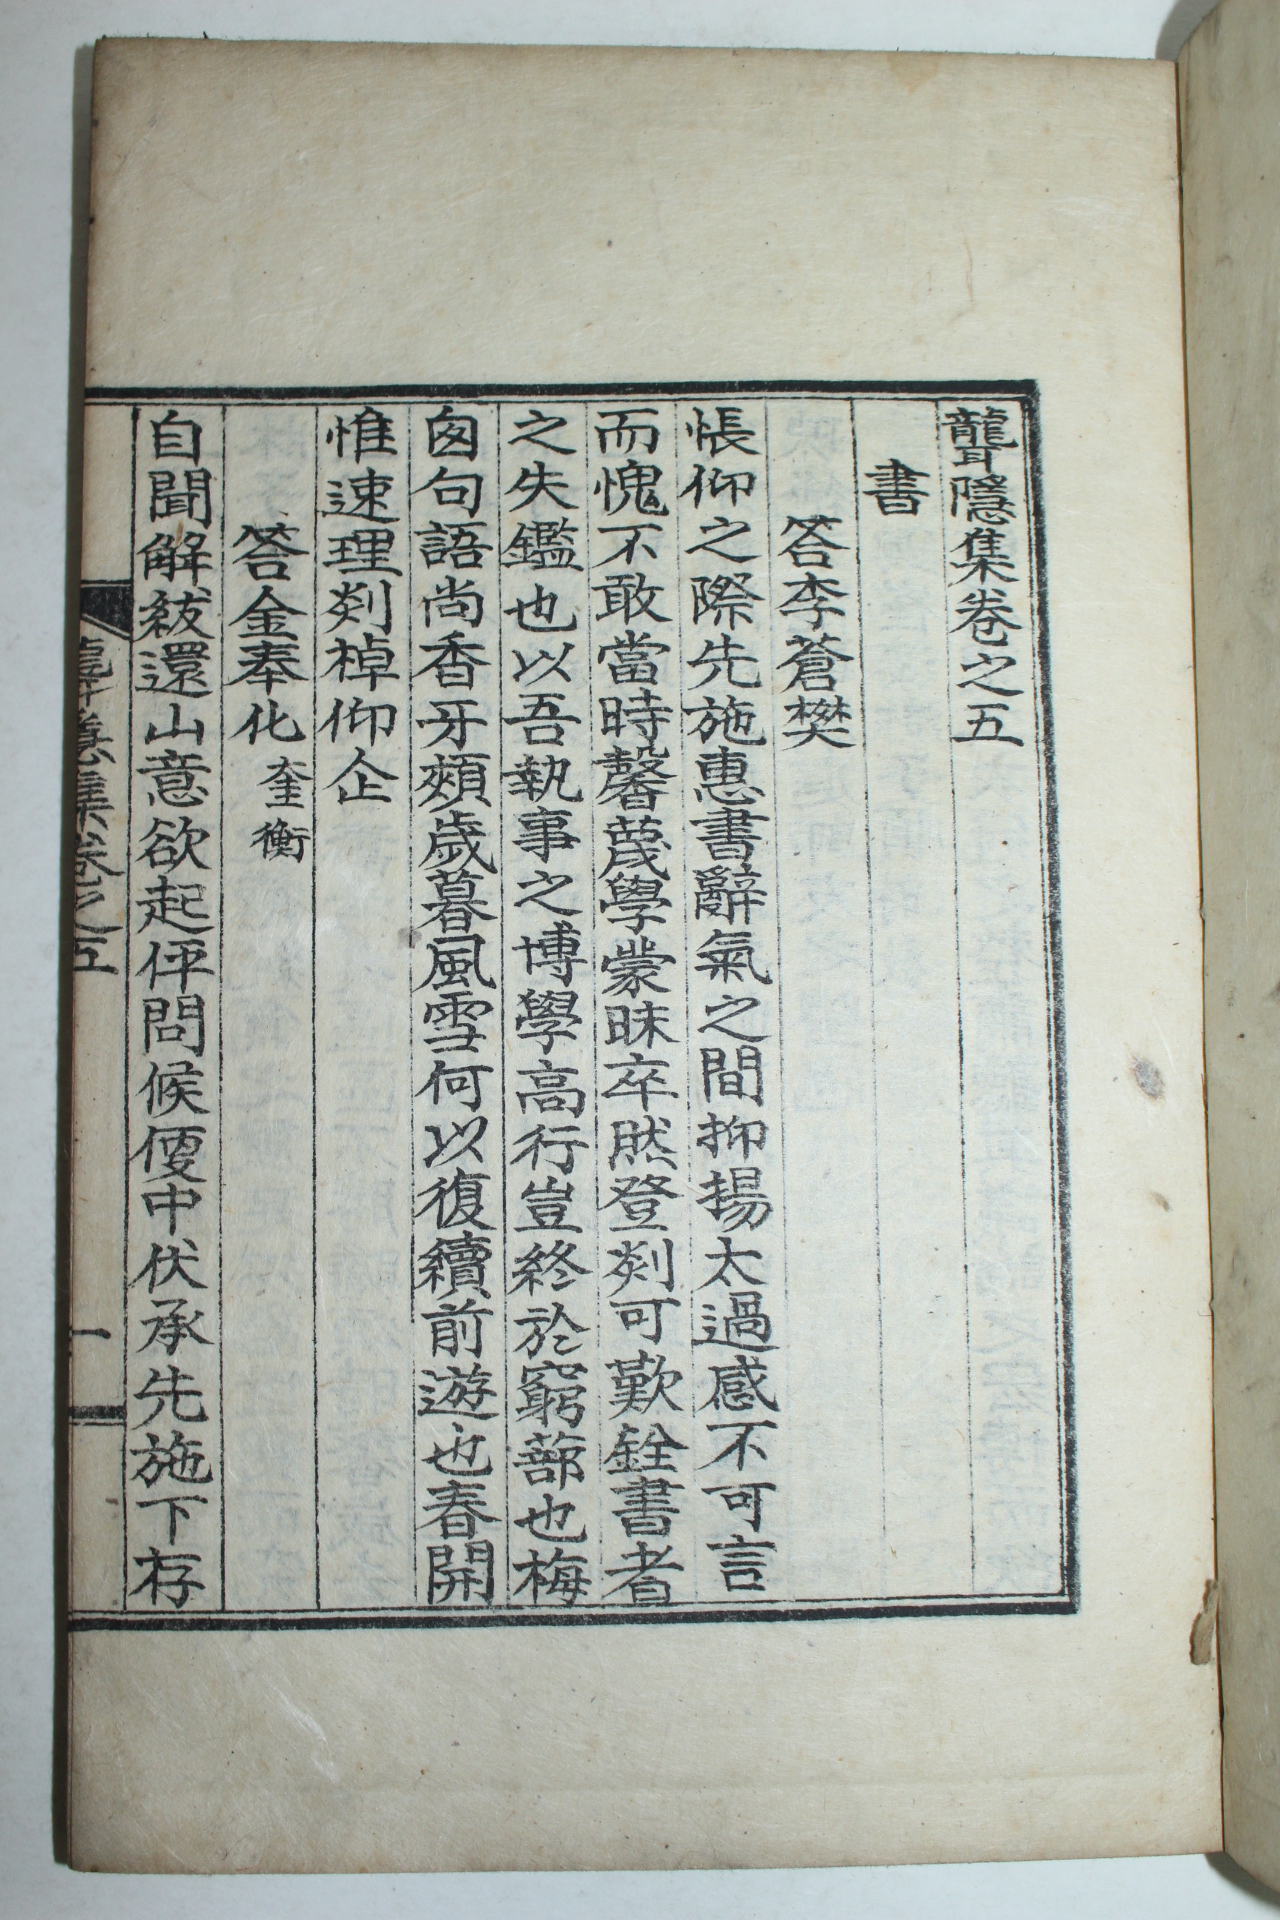 聾隱集卷之五
書
答李蒼樊
悵仰之際先施惠書辭氣之間抑揚太過感不可言
而愧不敢當時馨蔑學蒙昧卒然登剡可歎銓書者
之失鑑也以吾執事之博學高行豈終於窮蔀也梅
囱句語尚香牙頰歲暮風雪何以復續前遊也春開
惟速理剡棹仰企
答金奉化 奎衡
自聞解紱還山意欲起伻問候便中伏承先施下存
聾隱集卷之五
一